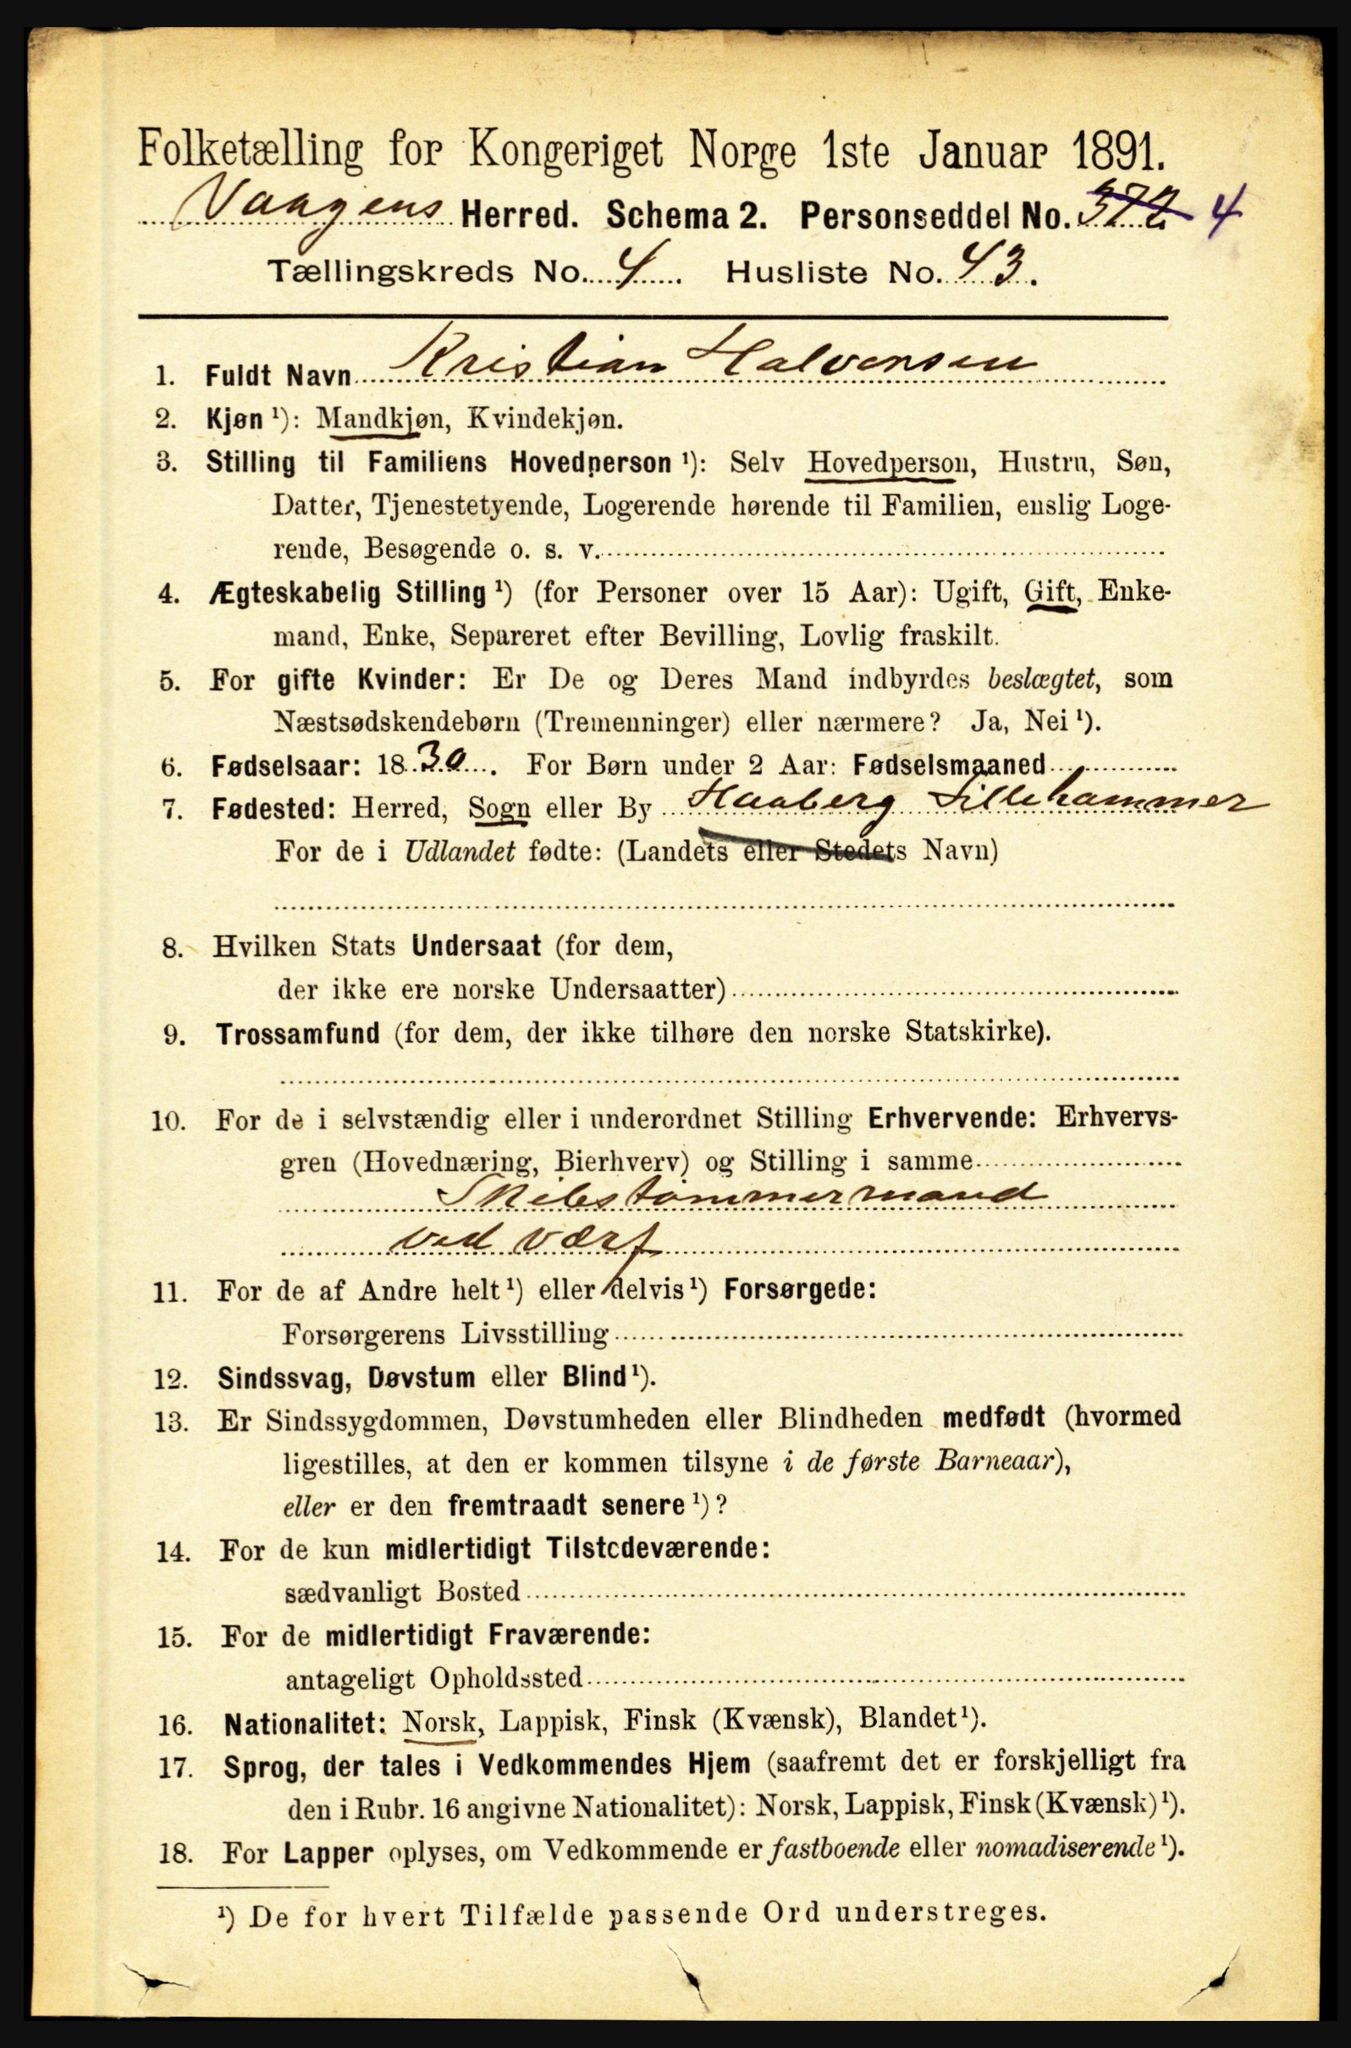 Folketælling for Kongeriget Norge 1ste Januar 1891.
Vaagens Herred. Schema 2. Personseddel No. 372 4
Tællingskreds No. 4. Husliste No. 43.
1. Fuldt Navn Kristian Halvorsen
2. Kjøn ¹): Mandkjøn, Kvindekjøn.
3. Stilling til Familiens Hovedperson ¹): Selv Hovedperson, Hustru, Søn,
Datter, Tjenestetyende, Logerende hørende til Familien, enslig Loge-
rende, Besøgende o. s. v.
4. Ægteskabelig Stilling ¹) (for Personer over 15 Aar): Ugift, Gift, Enke-
mand, Enke, Separeret efter Bevilling, Lovlig fraskilt.
5. For gifte Kvinder: Er De og Deres Mand indbyrdes beslægtet, som
Næstsødskendebørn (Tremenninger) eller nærmere? Ja, Nei ¹).
6. Fødselsaar: 1830. For Børn under 2 Aar: Fødselsmaaned
7. Fødested: Herred, Sogn eller By Haaberg Lillehammer
For de i Udlandet fødte: (Landets eller Stedets Navn)
8. Hvilken Stats Undersaat (for dem,
der ikke ere norske Undersaatter)
9. Trossamfund (for dem, der ikke tilhøre den norske Statskirke).
10. For de i selvstændig eller i underordnet Stilling Erhvervende: Erhvervs-
gren (Hovednæring, Bierhverv) og Stilling i samme
Skibstømmermand
ved værf
11. For de af Andre helt ¹) eller delvis ¹) Forsørgede:
Forsørgerens Livsstilling
12. Sindssvag, Døvstum eller Blind ¹).
13. Er Sindssygdommen, Døvstumheden eller Blindheden medfødt (hvormed
ligestilles, at den er kommen tilsyne i de første Barneaar),
eller er den fremtraadt senere ¹)?
14. For de kun midlertidigt Tilstedeværende:
sædvanligt Bosted
15. For de midlertidigt Fraværende:
antageligt Opholdssted
16. Nationalitet: Norsk, Lappisk, Finsk (Kvænsk), Blandet ¹).
17. Sprog, der tales i Vedkommendes Hjem (saafremt det er forskjelligt fra
den i Rubr. 16 angivne Nationalitet): Norsk, Lappisk, Finsk (Kvænsk) ¹).
18. For Lapper oplyses, om Vedkommende er fastboende eller nomadiserende ¹).
¹) De for hvert Tilfælde passende Ord understreges.